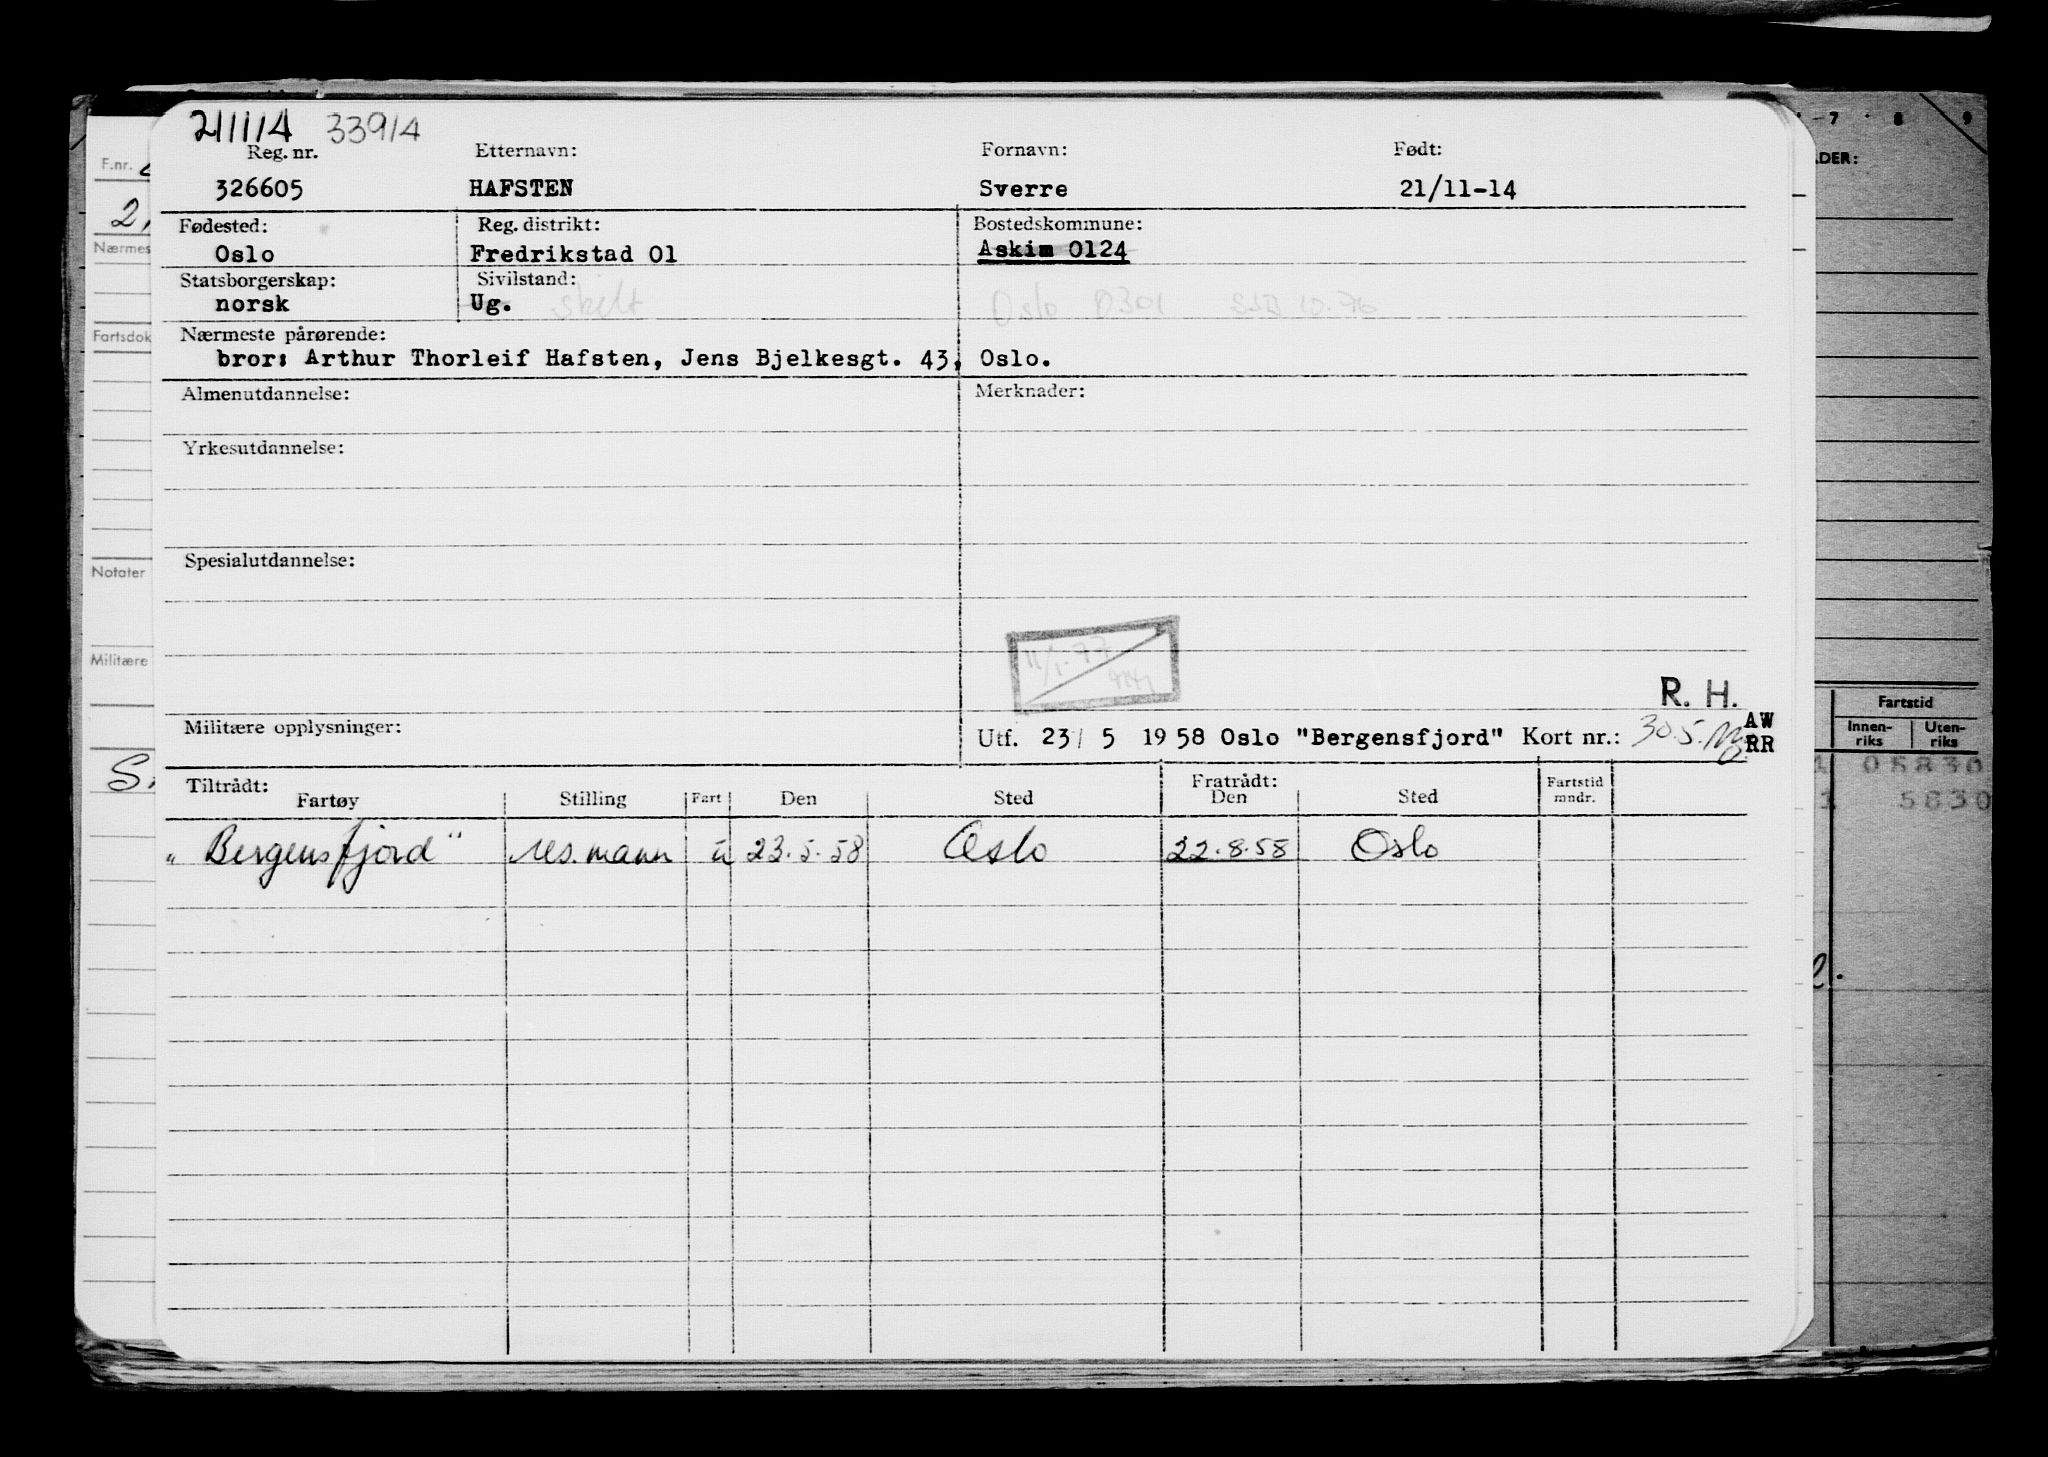 211114 33914
Reg. nr. Etternavn: Fornavn: Født:
326605 HAFSTEN Sverre 21/11-14
Fødested: Reg. distrikt: Bostedskommune:
Oslo Fredrikstad 01 Askim 0124
Statsborgerskap: Sivilstand:
norsk Ug. skilt Oslo 0301 SSB 10.76
Nærmeste pårørende:
bror: Arthur Thorleif Hafsten, Jens Bjelkesgt. 43, Oslo.
Almenutdannelse: Merknader:
Yrkesutdannelse:
Spesialutdannelse:
11/1-77
R. H.
Militære opplysninger: Utf. 23/ 5 1958 Oslo "Bergensfjord" Kort nr.: 30.5. AW
RR
Tiltrådt: Fratrådt:
Fartøy Stilling Fart Den Sted Den Sted Fartstid mndr.
"Bergensfjord" mann u 23.5.58 Oslo 22.8.58 Oslo
F.nr.
2,
Nærmes
Fartsdok
Notater
Militære
S.
7 8 9
DER:
Fartstid
Innen-riks Uten-riks
05830
5830